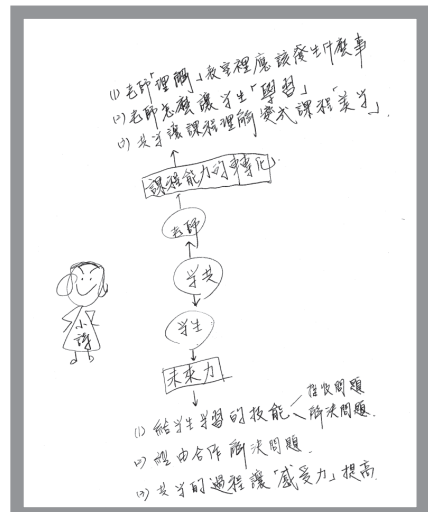 (1) 老師「理解」教室裡應該發生什麼事
(2) 老師怎麼讓学生「學習」
(3) 共学讓課程理解變成課程「美学」.
課程能力的轉化
老師
学共
学生
小譯
未來力
(1) 給学生学習的技能 找問題
解決問題.
(2) 經由合作解決問題.
(3) 共学的過程讓「感受力」提高.